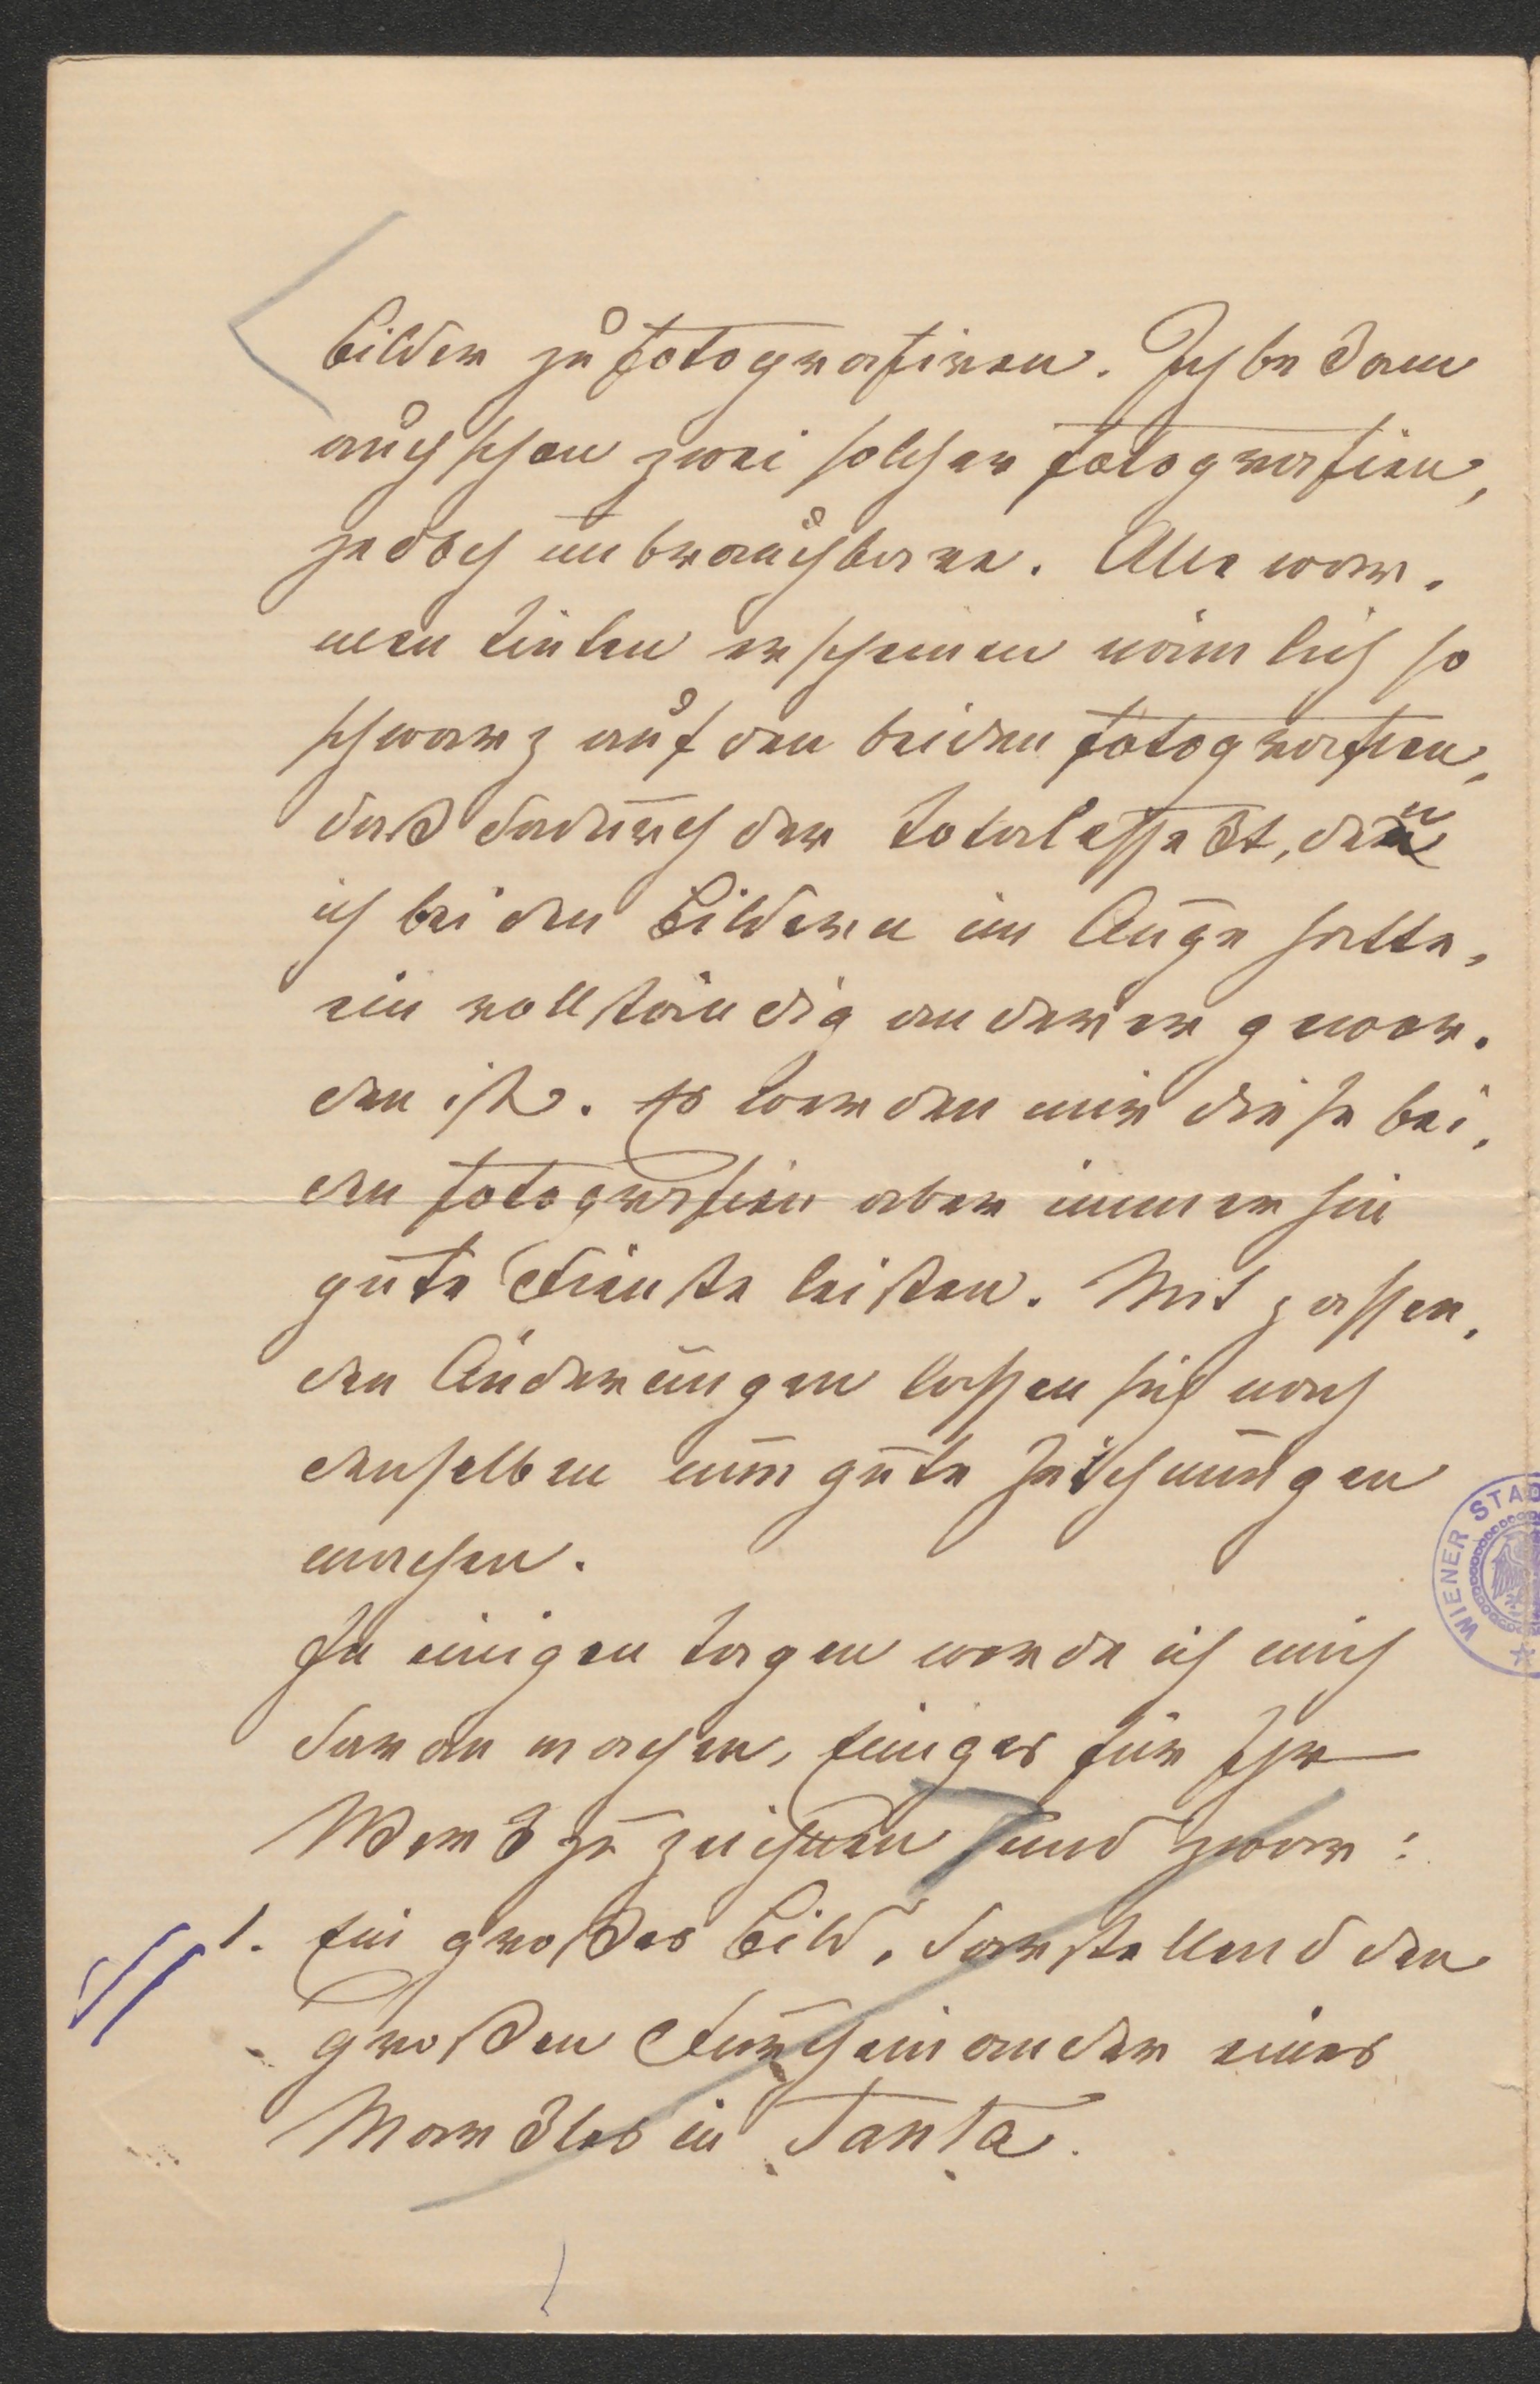 Bilder zu fotografiren. Ich bekam
auch schon zwei solcher Fotografien,
jedoch unbrauchbare. Alle war-
men Tinten erscheinen nämlich so
schwarz auf den beiden Fotografien,
daß dadurch der Totaleffekt, den
ich bei den Bildern im Auge hatte,
ein vollständig anderer gewor-
den ist. Es werden mir diese bei-
den Fotografien aber immerhin
gute Dienste leisten. Mit passen-
den Änderungen lassen sich nach
denselben nun gute Zeichnungen
machen.
In einigen Tagen werde ich mich
daran machen, Einiges für Ihr
Werk zu zeichnen und zwar:
1. Ein großes Bild, darstellend den
großen Durcheinander eines
Marktes in Tanta.
WIENER STAD